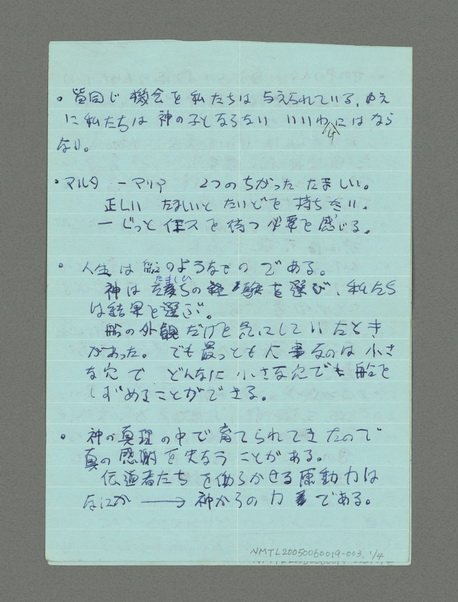 ・皆同じ機会を私たちは与えられている、ゆえ
に私たちは神の子とならない いいわけにはなら
ない。
・マルタ ーマリア 2つのちがった たましい。
正しい たましいと たいどを 持ちたい。
ーじっと 任スを待つ 必要を感じる。
・人生は船のようなもの である。
たましい
神は 私達ちの経験を選び、私たち
は結果を選ぶ。
船の外観だけを気にしていたとき
があった。でも最っとも大事なのは小さ
な穴で どんなに 小さな穴でも 船を
しずめることができる。
・神の真理の中で育てられてきたので
真の感謝を失なうことがある。
伝道者たちを働らかせる原動力は
なにか → 神からの力 である。
NMTL20050060019-003 1/4